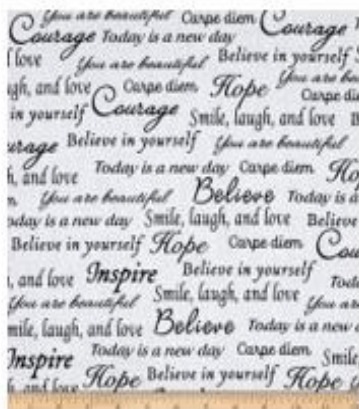 You are beautiful Carpe diem C
Courage Today is a new day Courage
f love You are beautiful Believe in yourself S
gh, and love Carpe diem Hope You are be
in yourself Courage Carpe die
Smile, laugh, and love B
urage Believe in yourself You are beautiful
h, and love Today is a new day Carpe diem Ho
You are beautiful Believe Today is a
oday is a new day Smile, laugh, and love Believe
Believe in yourself Hope Carpe diem Cou
, and love Inspire Believe in yourself Toda
You are beautiful Smile, laugh, and love You are
mile, laugh, and love Believe Today is a new d
Inspire Today is a new day Carpe diem Smile
h, and love Hope Believe in yourself Hope